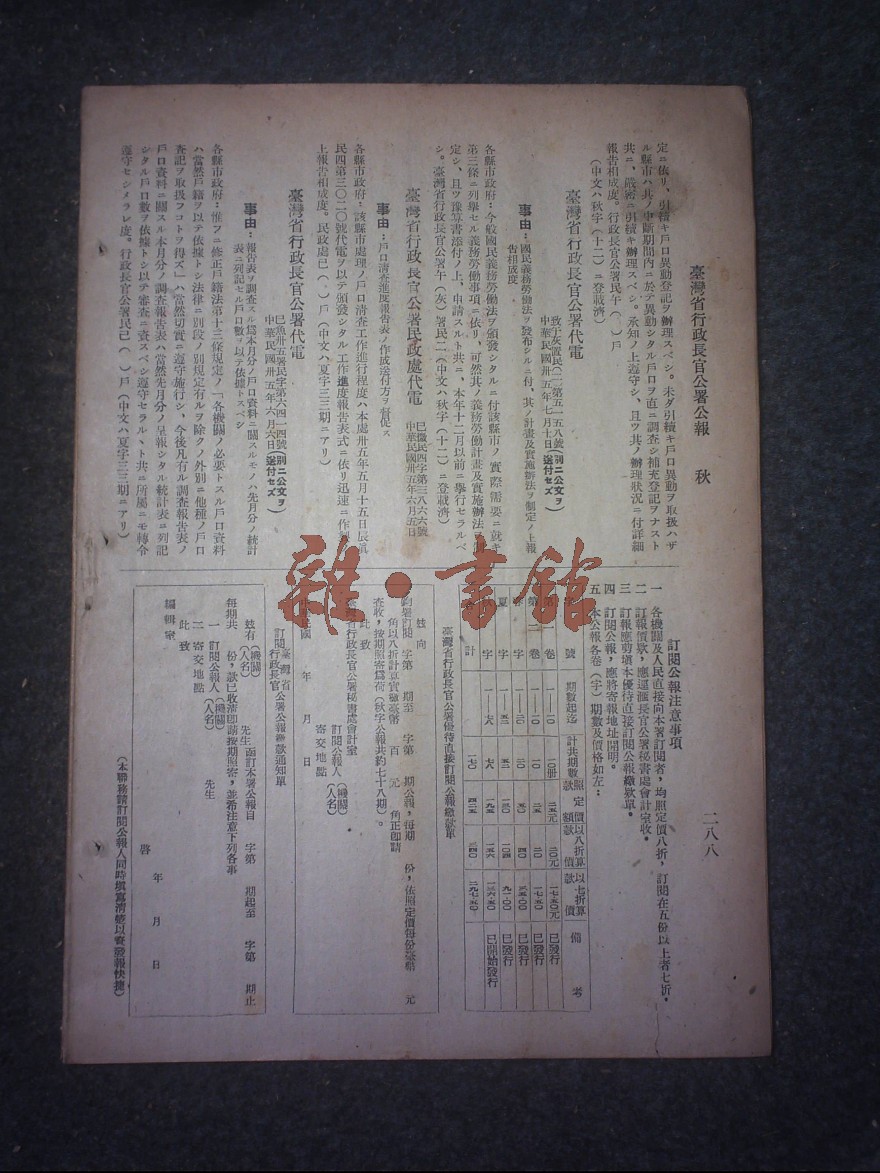 臺灣省行政長官公署公報　秋　二八八
定ニ依リ、引續キ戶口異動登記ヲ辦理スベシ。未ダ引續キ戶口異動ヲ取扱ハザ
ル縣市ハ其ノ中斷期間内ニ於テ異動シタル戶口ヲ直ニ調査シ補充登記ヲナスト
共ニ、嚴密ニ引續キ辦理スベシ。承知ノ上遵守シ、且ツ其ノ辦理狀況ニ付詳細
報告相成度。行政長官公署民午（　）戶
（中文ハ秋字（十二）ニ登載濟）
臺灣省行政長官公署代電
中華民國卅五年七月十日（別ニ公文ヲ送付セズ）
事由：國民義務勞働法ヲ發布シタルニ付、其ノ計畫及實施辦法ヲ制定ノ上報
告相成度
各縣市政府：今般國民義務勞働法ヲ頒發シタルニ付該縣市ノ實際需要ニ就キ
第三條ニ列擧セル義務勞働事項ニ依リ、可然其ノ義務勞働計畫及實施辦法ヲ
定シ、且ツ豫算書添付ノ上、申請スルト共ニ、本年十二月以前ニ擧行セラルベ
シ。臺灣省行政長官公署午（灰）署民二（中文ハ秋字（十二）ニ登載濟）
臺灣省行政長官公署民政處代電
民四字第三八六六號
中華民國卅五年六月五日
事由：戶口淸查進度報告表ノ作成送付方ヲ督促ス
各縣市政府：該縣市處理ノ戶口淸査工作進行程度ハ本處卅五年五月十五日辰眞
民四第三〇二〇號代電ヲ以テ頒發シタル工作進度報告表式ニ依リ迅速ニ作製
上報告相成度。民政處巳（　）戶（中文ハ夏字三三期ニアリ）
臺灣省行政長官公署代電
巳魚卅五署民字第六四一四號
中華民國卅五年六月六日（別ニ公文ヲ送付セズ）
事由：報告表ヲ調査スル爲本月分ノ戶口資料ニ關スルモノハ先月分ノ統計
表ニ列記セル戶口數ヲ以テ依據トスベシ
各縣市政府：惟フニ修正戶籍法第十三條規定ノ「各機關ノ必要トスル戶口資料
ハ當然戶籍ヲ以テ依據トシ法律ニ別段ノ規定有ルヲ除クノ外別ニ他種ノ戶口
査記ヲ取扱フコトヲ得ズ」ハ當然切實ニ遵守施行シ、今後凡有ル調査報告表ノ
戶口資料ニ關スル本月分ノ調査報告表ハ當然先月分ノ呈報シタル統計表ニ列記
シタル戶口數ヲ依據トシ以テ審査ニ資スベシ遵守セラルヽト共ニ所屬ニモ轉令
遵守セシメラレ度。行政長官公署民巳（　）戶（中文ハ夏字三三期ニアリ）
訂閱公報注意事項
一　各機關及人民直接向本署訂閱者，均照定價八折，訂閱在五份以上者七折。
二　訂報價款，應逕匯長官公署秘書處會計室收。
三　訂報應剪塡本優待直接訂閱公報繳款單。
四　訂閱公報，應將寄報地址開明。
五　本公報各卷（字）期數及價格如左：
字號　期數起迄　計共期數　照定價款額　以八折算款價　以七折算款價　備考
第一卷　一—一〇　一〇册　二五元　二〇元　一七·五〇元　已發行
第二卷　一—一〇　一〇　二五　二〇　一七·五〇　已發行
春字　已發行
夏字　已發行
秋字　一—七八　七八　一九五　一五六　一三六·五〇　已開始發行
臺灣省行政長官公署優待直接訂閱公報繳款單
玆向
鈞署訂閱　字第　期至　字第　期公報，每期　份，依照定價每份臺幣　元
角以八折計算實繳臺幣　百　元　角正卽請
査收，按期照寄爲荷（秋字公報共約七十八期）。
此致
臺灣省行政長官公署秘書處會計室
訂閱公報人（機關）（人名）
寄交地點
中華民國　年　月　日
訂閱臺灣省行政長官公署公報繳款通知單
玆有（機關）（人名）　先生函訂本署公報自　字第　期起至　字第　期止
每期共　份，款已收淸卽請按期照寄，並希注意下列各事
一　訂閱公報人（機關）（人名）　先生
二　寄交地點
此致
編輯室
啓　年　月　日
（本聯務請訂閱公報人同時塡寫淸楚以資發報快捷）
雜·書館